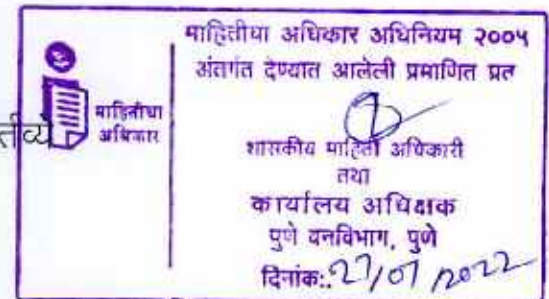 माहितीचा अधिकार अधिनियम २००५
अंतर्गत देण्यात आलेली प्रमाणित प्रत
माहितीचा
अधिकार
तव्ये
शासकीय माहिती अधिकारी
तथा
कार्यालय अधिक्षक
पुणे वनविभाग, पुणे
दिनांक:. 27/07/2022